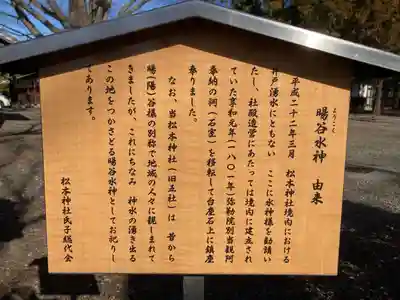 ようこく
暘谷水神　由来
平成二十二年三月　松本神社境内における
井戸湧水にともない　ここに水神様を勧請い
たし、社殿造営にあたっては境内に建成され
ていた享和元年（一八〇一年）弥勒院別当観阿
奉納の祠（石室）を移転して台座石上に鎮座
奉りました。
なお、当松本神社（旧正社）は　昔から
暘（陽）谷様の別称で地域の人々に親しまれて
きましたが、これにちなみ　神水の湧き出る
この地をつかさどる暘谷水神としてお祀りし
てあります。
松本神社氏子総代会